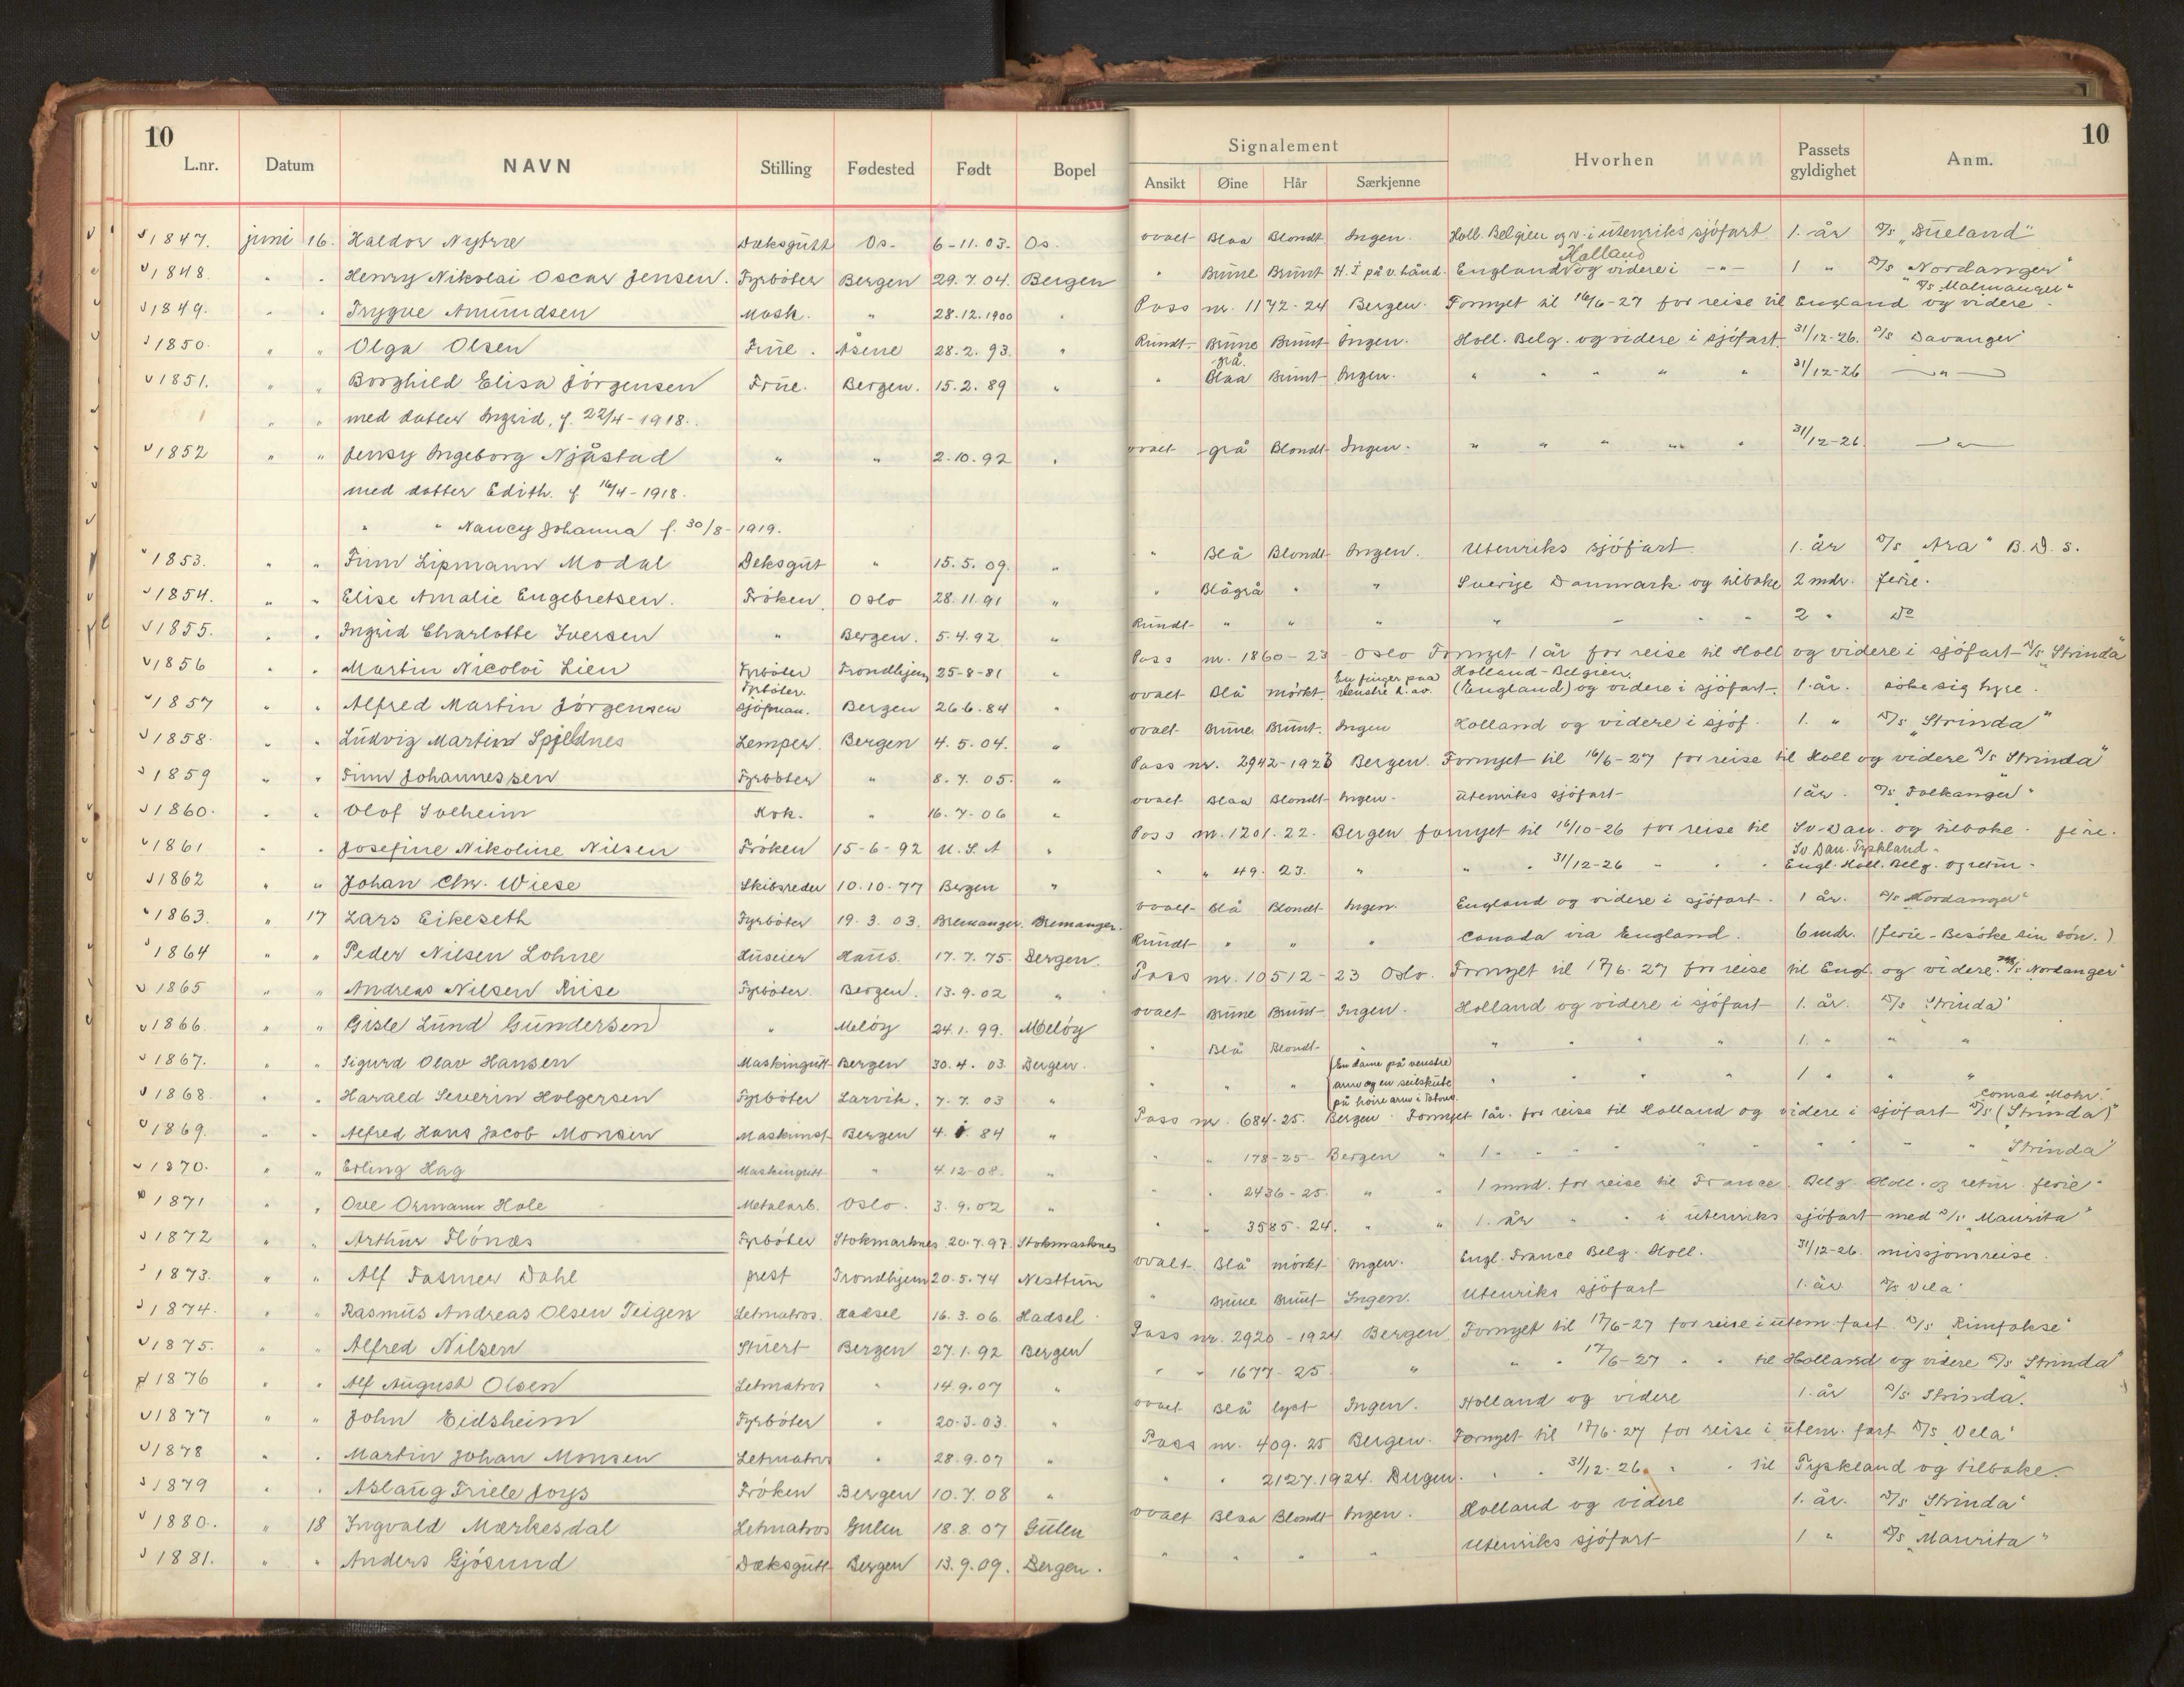 10
L.nr. Datum NAVN Stilling Fødested Født Bopel
Signalement
Ansikt Øine Hår Særkjenne
Hvorhen Passets gyldighet Anm.
10
1847. juni 16. Haldor Nytræ Dæksgutt Os. 6-11.03. Os. ovalt Blaa Blondt Ingen. Holl. Belgien og v. i utenriks sjöfart 1. år D/s "Dueland"
Holland
1848. " . Henry Nikolai Oscar Jensen. Fyrböter Bergen 29.7.04. Bergen " Brune Brunt H.I på v. hånd. England og videre i -"- 1 " D/s "Nordanger"
"D/s Malmanger"
1849. " . Trygve Amundsen Mask. " 28.12.1900 . Pass nr. 1172-24 Bergen. Fornyet til 16/6-27 for reise til England og videre.
1850. " " Olga Olsen Frue. Åsene 28.2.93. " Rundt Brune Brunt Ingen. Holl. Belg. og videre i sjöfart. 31/12-26. D/s Davanger
grå.
1851. " " Borghild Elisa Jörgensen Frue. Bergen. 15.2.89 " " Blaa Brunt Ingen. " " " " " 31/12-26 -"-
" " med datter Ingrid, f. 22/4-1918.
1852 " " Jensy Ingeborg Njåstad " " 2.10.92 . ovalt grå Blondt Ingen. " " " " " 31/12-26. -"-
med datter Edith. f 16/4-1918.
" " Nancy Johanna f. 30/8-1919.
1853. " " Finn Lipmann Modal Deksgut " 15.5.09. " " Blå Blondt Ingen. Utenriks sjöfart 1. år D/s "Ara" B.D.S.
1854. " " Elise Amalie Engebretsen. Fröken. Oslo 28.11.91 " " Blågrå " " Sverige Danmark og tilbake 2 mdr. ferie.
1855. . . Ingrid Charlotte Iversen " Bergen. 5.4.92 " Rundt " " " " " " " 2 " Do
1856 " . Martin Nicolai Lien Fyrböter Trondhjem 25-8-81 " Pass nr. 1860-23 - Oslo Fornyet 1 år for reise til Holl og videre i sjöfart D/s "Strinda"
Fyrböter. En finger paa Holland-Belgien.
1857 " . Alfred Martin Jörgensen sjöman. Bergen 26.6.84 " ovalt Blå mörkt. venstre h. av. (England) og videre i sjöfart. 1. år. söke sig hyre.
1858. " . Ludvig Martin Spjeldnes Lemper. Bergen 4.5.04. " ovalt Brune Brunt. Ingen Holland og videre i sjöf. 1. " D/s "Strinda"
1859 " " Finn Johannessen Fyrböter " 8.7.05. " Pass nr. 2942-1923 Bergen. Fornyet til 16/6-27 for reise til Holl og videre D/s "Strinda"
1860. . . Olof Solheim Kok. " 16.7-06 " ovalt Blaa Blondt Ingen. utenriks sjöfart 1 år. D/s "Folkanger"
1861 " . Josefine Nikoline Nilsen Fröken 15-6-92 U.S.A . Pass nr. 1201.22. Bergen fornyet til 16/10-26 for reise til Sv-Dan. og tilbake. ferie.
Sv. Dan. Tyskland -
1862 " " Johan Chr. Wiese Skibsreder 10.10-77 Bergen " " " 49. 23. " " " 31/12-26 " " " Engl. Holl. Belg. og retur.
1863. " 17 Lars Eikeseth Fyrböter 19.3.03. Bremanger. Bremanger. ovalt Blå Blondt Ingen. England og videre i sjöfart. 1 år. D/s "Nordanger"
1864 " " Peder Nilsen Lohne Huseier Haus. 17.7.75. Bergen. Rundt " " " Canada via England. 6 mdr. (ferie - Besöke sin sön.)
1865 " " Andreas Nilsen Riise Fyrböter. Bergen. 13.9.02 " Pass nr. 10512-23 Oslo. Fornyet til 17/6-27 for reise til Engl. og videre. D/s "Nordanger"
1866. " " Gisle Lund Gundersen " Melöy 24.1.99. Melöy ovalt Brune Brunt Ingen. Holland og videre i sjöfart 1. år. D/s "Strinda"
1867. " " Sigurd Olav Hansen Maskingutt Bergen 30.4.03. Bergen. " Blå Blondt " " " " " 1. " " "
(En dame på venstre
1868. " " Harald Severin Holgersen Fyrböter Larvik. 7.7.03 " " " " arm og en seilskute " " " " 1 " " "
på höire arm i tatover. Conrad Mohr.
1869. " " Alfred Hans Jacob Monsen Maskinist Bergen 4.8.84 " Pass nr. 684-25. Bergen. Fornyet 1 år. for reise til Holland og videre i sjöfart D/s ("Strinda")
1870. " " Erling Hag Maskingutt " 4.12-08. " " " 178-25- Bergen " 1 " " " " " " " " "Strinda"
1871 " " Ove Ormann Hole Metalarb. Oslo. 3.9.02 " " " 2436-25. " " 1 mnd. for reise til France. Belg. Holl. og retur. ferie.
1872 " " Arthur Flönæs Fyrböter Stokmarknes 20.7.97. Stokmarknes " " 3585-24. " " 1. år " " i utenriks sjöfart med D/s "Maurita"
1873. " " Alf Fasmer Dahl prest Trondhjem 20.5.74 Nesttun ovalt Blå mörkt Ingen. Engl. France Belg. Holl. 31/12-26. missjonsreise.
1874. " " Rasmus Andreas Olsen Teigen Letmatros. Hadsel 16.3.06. Hadsel " Brune Brunt Ingen. Utenriks sjöfart 1. år. D/s "Vela"
1875. " " Alfred Nilsen Stuert Bergen 27.1.92 Bergen Pass nr. 2920-1924 Bergen. Fornyet til 17/6-27 for reise i utenr. fart. D/s "Rimfakse"
1876 " . Alf August Olsen Letmatros " 14.9.07 " " " 1677-25. " " " 17/6-27 " " til Holland og videre D/s "Strinda"
1877 " " John Eidsheim Fyrböter " 20.3.03. " ovalt Blå lyst Ingen. Holland og videre 1. år D/s "Strinda".
1878 . . Martin Johan Monsen Letmatros " 28.9.07 " Pass nr. 409.25 Bergen. Fornyet til 17/6-27 for reise i utenr. fart D/s "Vela"
1879 " . Aslaug Friele Joys Fröken Bergen 10.7.08 " " " 2127.1924. Bergen. " " 31/12-26. " " til Tyskland og tilbake.
1880. " 18 Ingvald Mærkesdal Letmatros Gulen 18.8.07 Gulen ovalt Blaa Blondt Ingen. Holland og videre 1. år. D/s "Strinda"
1881. " " Anders Gjösund Dæksgutt Bergen 13.9.09. Bergen. " " " " Utenriks sjöfart 1 " D/s "Maurita"